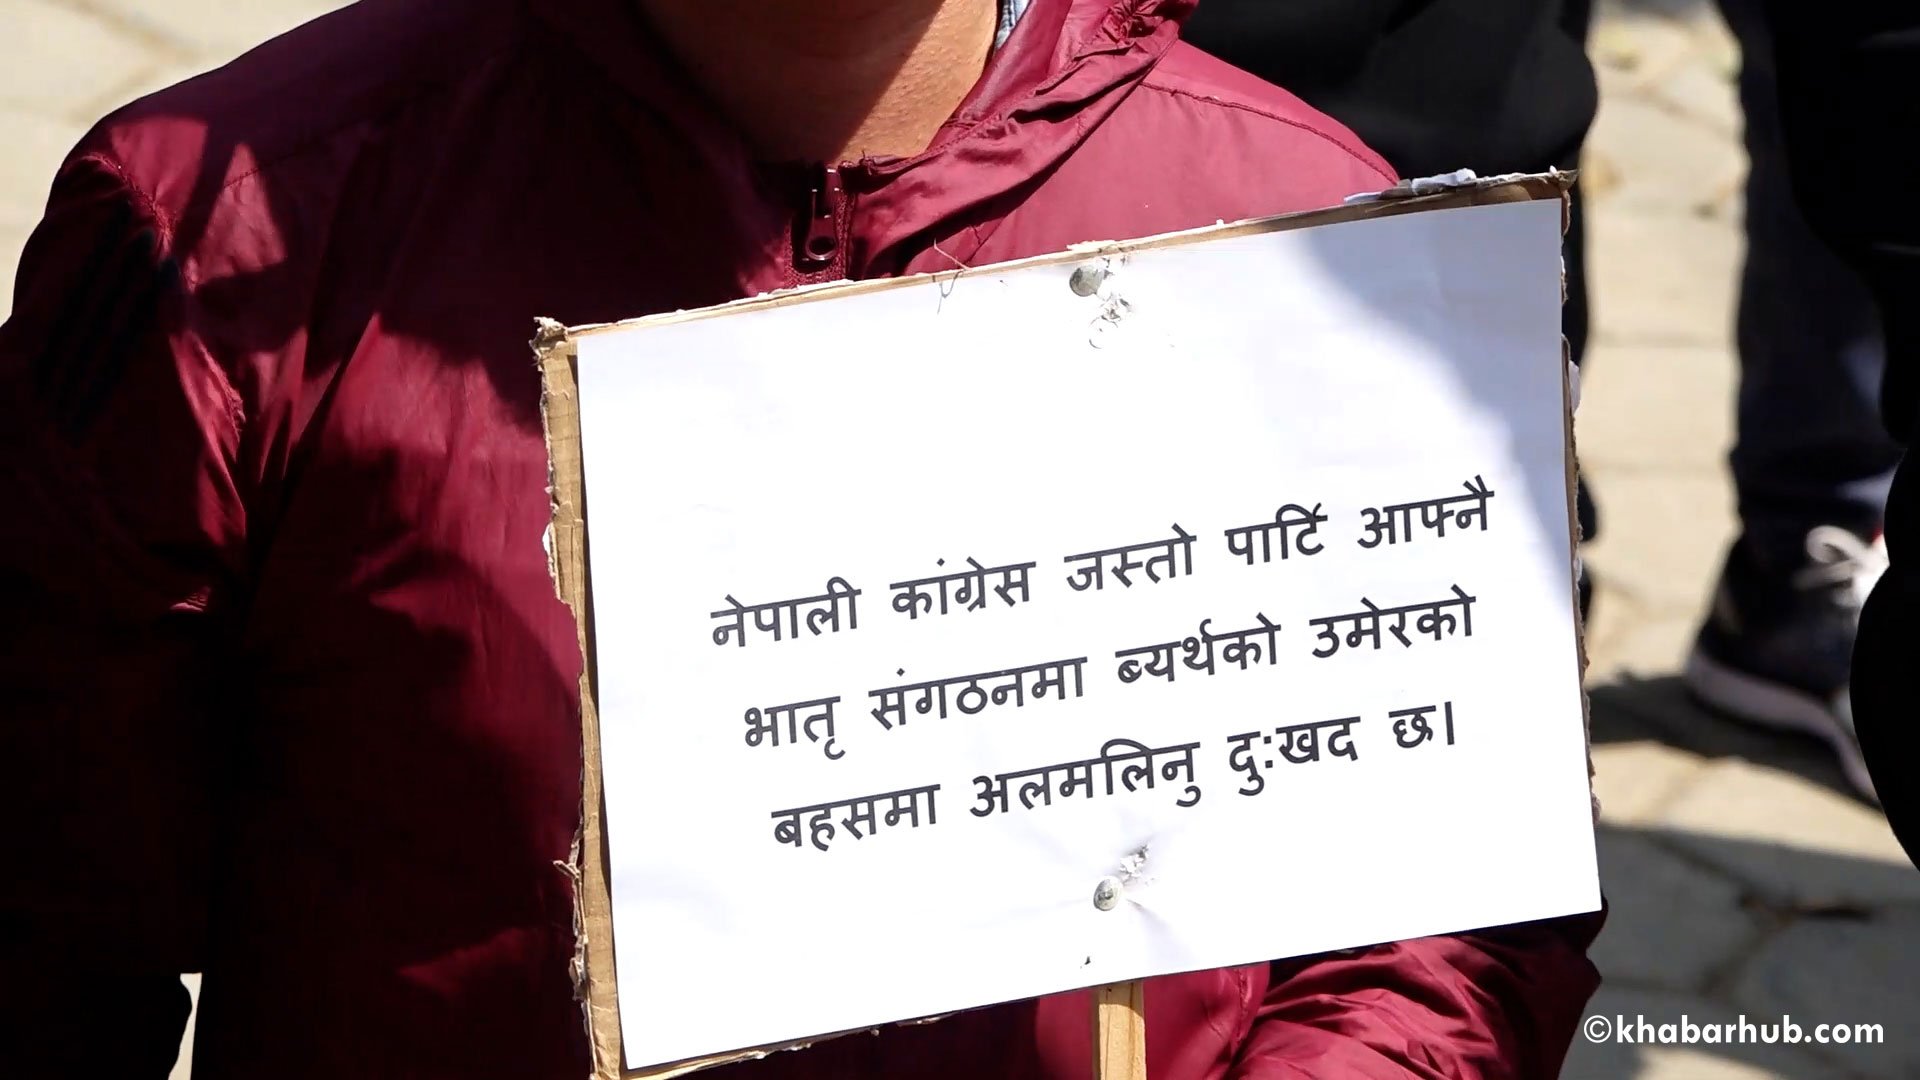 नेपाली कांग्रेस जस्तो पार्टि आफ्नै
भातृ संगठनमा ब्यर्थको उमेरको
बहसमा अलमलिनु दु:खद छ।
©khabarhub.com